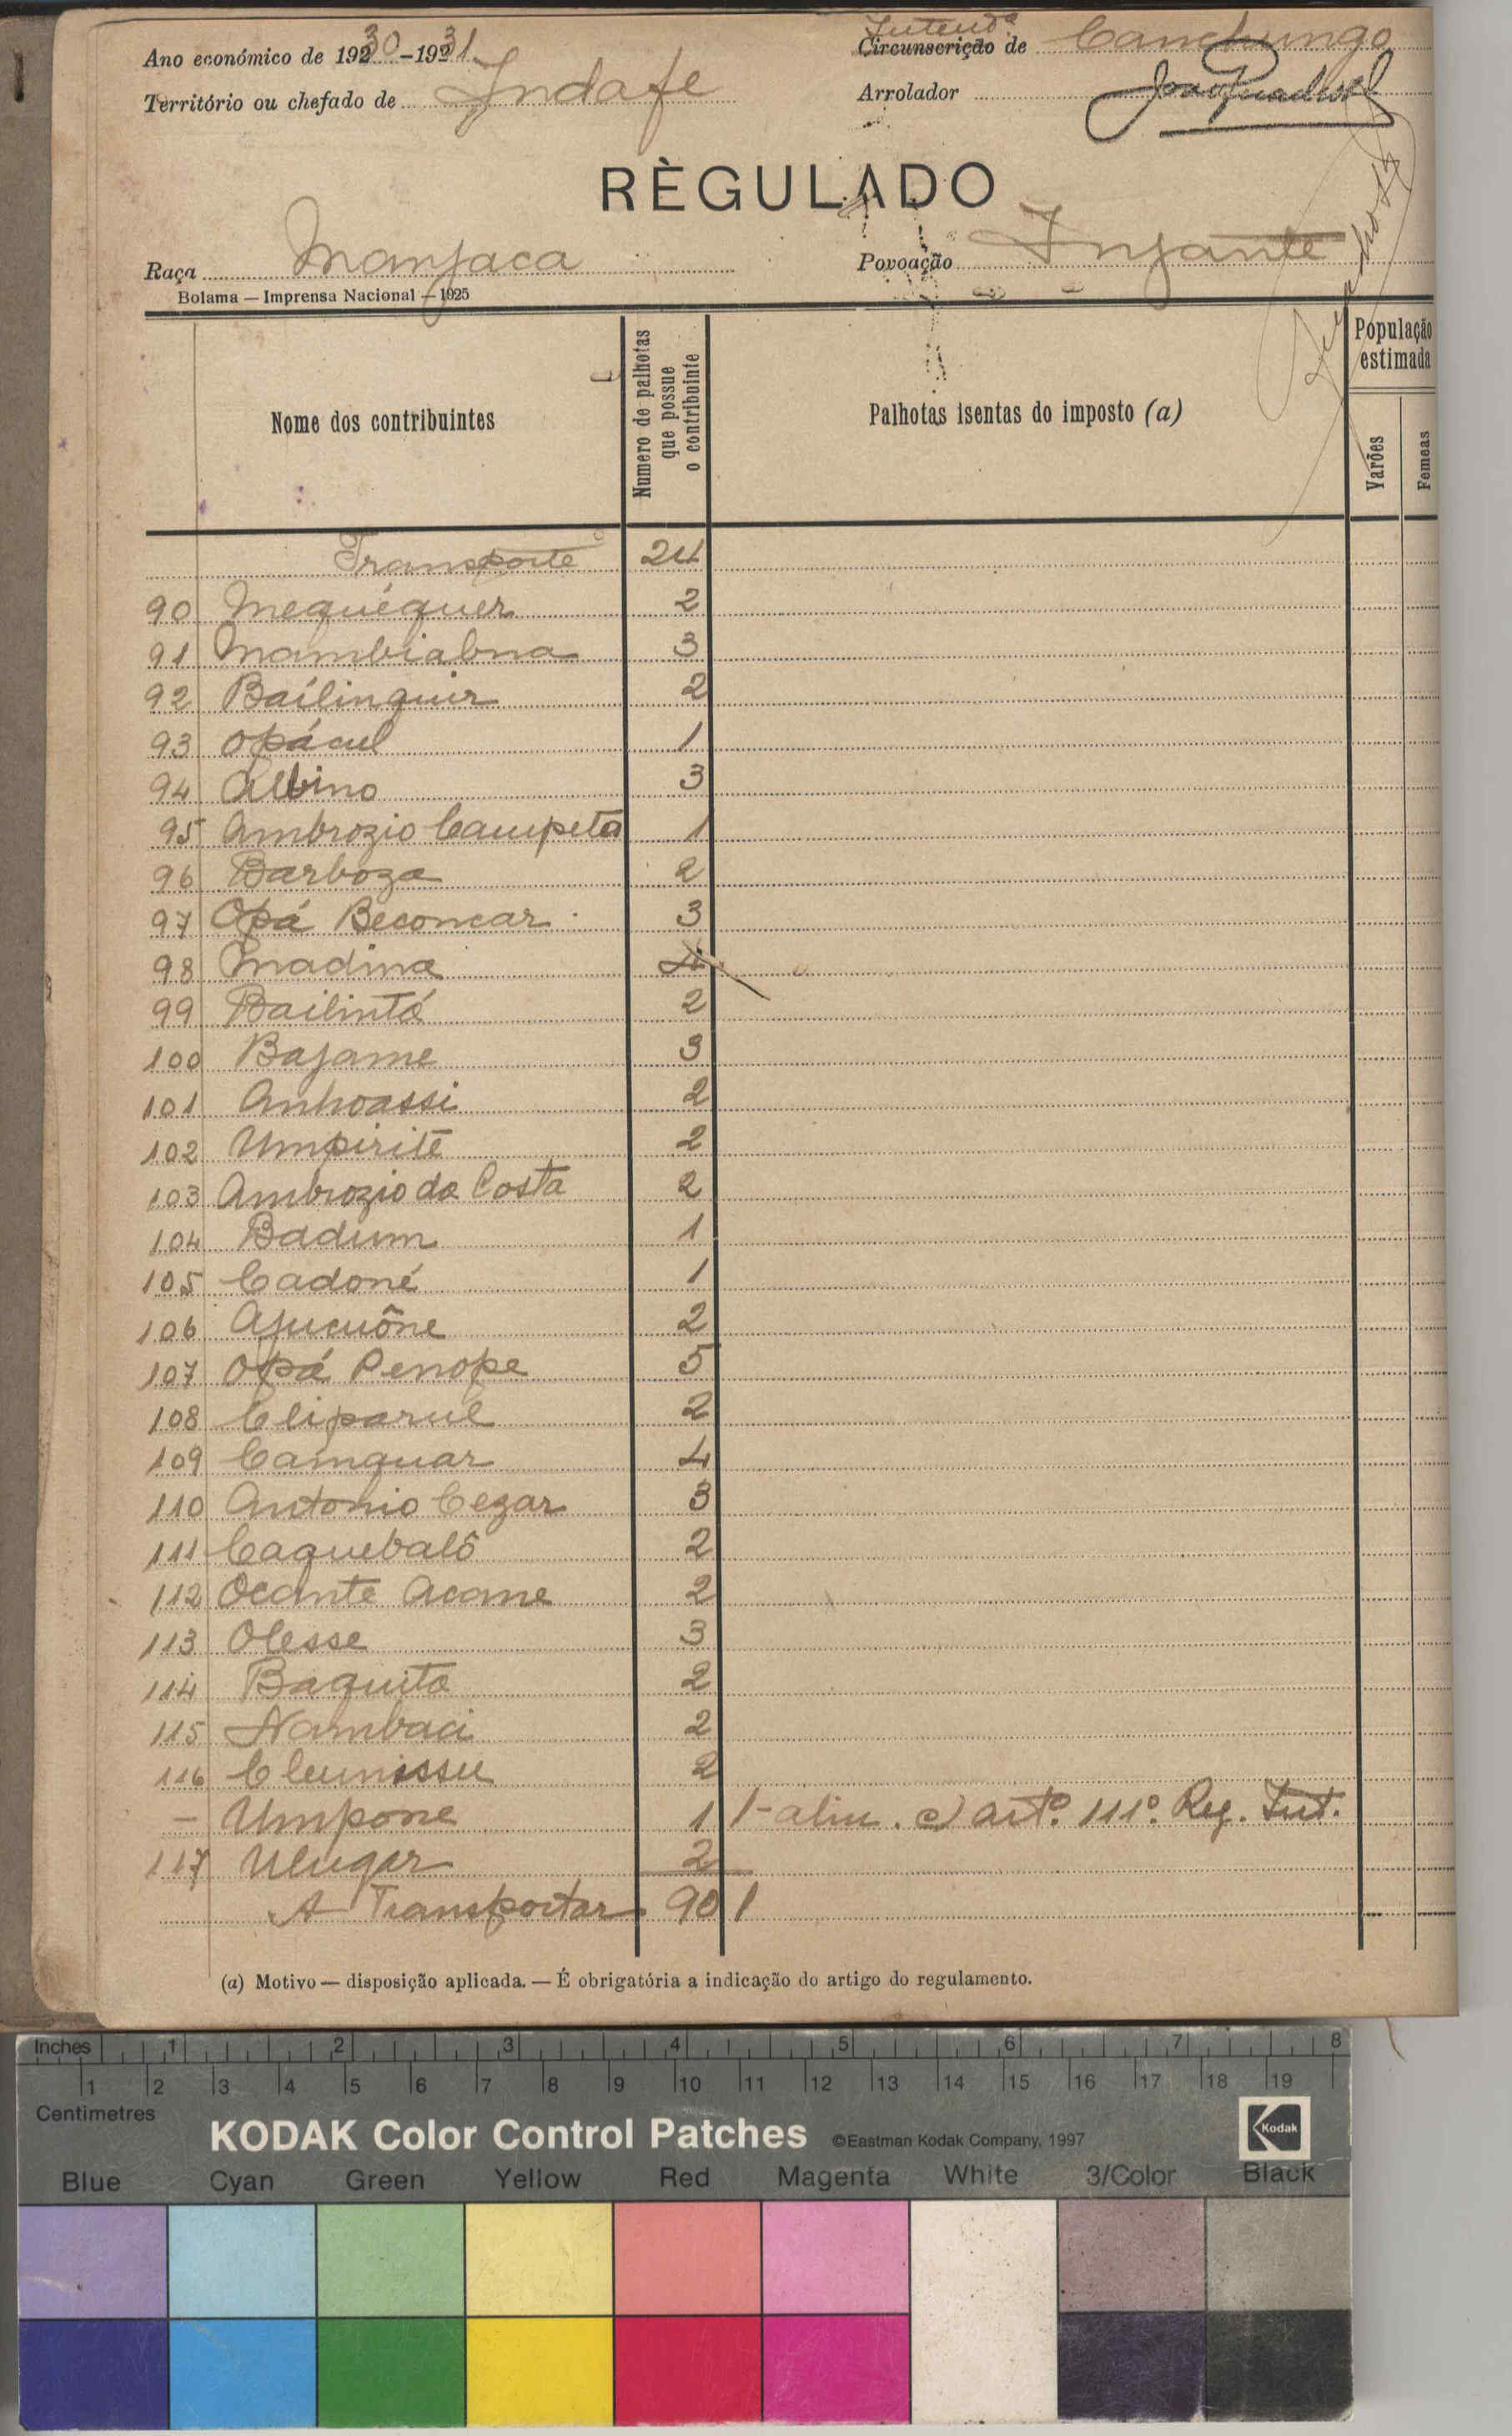 Ano económico de 1930-1931
Intendª
Circunscrição de Canchungo
Território ou chefado de Indafe
Arrolador
RÈGULADO
Raça Manjaca
Povoação Injante
Bolama — Imprensa Nacional — 1925
Nome dos contribuintes
Numero de palhotas que possue o contribuinte
Palhotas isentas do imposto (a)
População estimada
Varões
Femeas
Transporte 24
90 Mequéquer 2
91 Mambiabna 3
92 Bailinquir 2
93 Opácul 1
94 Albino 3
95 Ambrozio Campeta 1
96 Barboza 2
97 Opá Beconcar 3
98 Madina
99 Bailintá 2
100 Bajame 3
101 Anhoassi 2
102 Umpirite 2
103 Ambrozio da Costa 2
104 Badum 1
105 Cadoné 1
106 Ajucuône 2
107 Opá Penope 5
108 Cliparul 2
109 Camquar 4
110 Antonio Cezar 3
111 Caquebalô 2
112 Ocante Acane 2
113 Olesse 3
114 Baquita 2
115 Nambaci 2
116 Cleunissu 2
— Umpone 1 1 - alin. c) artº. 111º. Reg. Int.
117 Ulugar 2
A Transportar 90 1
(a) Motivo — disposição aplicada. — É obrigatória a indicação do artigo do regulamento.
Inches 1 2 3 4 5 6 7 8
1 2 3 4 5 6 7 8 9 10 11 12 13 14 15 16 17 18 19
Centimetres
KODAK Color Control Patches ©Eastman Kodak Company, 1997 Kodak
Blue Cyan Green Yellow Red Magenta White 3/Color Black